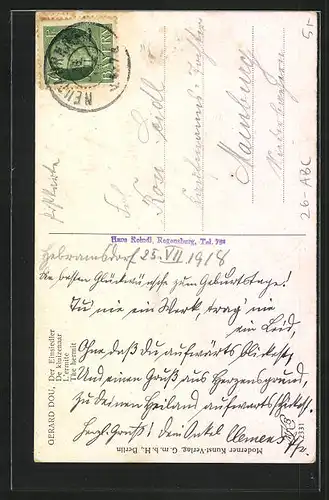 BAYERN
5-
Postkarte
Frl.
Seidl
Kaufmanns-Tochter
Mainburg
Niederbayern
26-ABC
Hans Reindl, Regensburg, Tel. 798
Gebramsdorf 25. VII. 1918
Die besten Glückwünsche zum Geburtstage!
Tu' nie ein Werk, trag' nie
ein Leid,
Ohne daß Du aufwärts blickest,
Und einen Gruß aus Herzensgrund,
Zu Deinem Heiland aufwärts schickest.
Hrzl. Gruß! Dein Onkel Clemens
GERARD DOU, Der Einsiedler
De kluizenaar
L'ermite
The hermit
Moderner Kunst-Verlag, G.m.b.H., Berlin
331